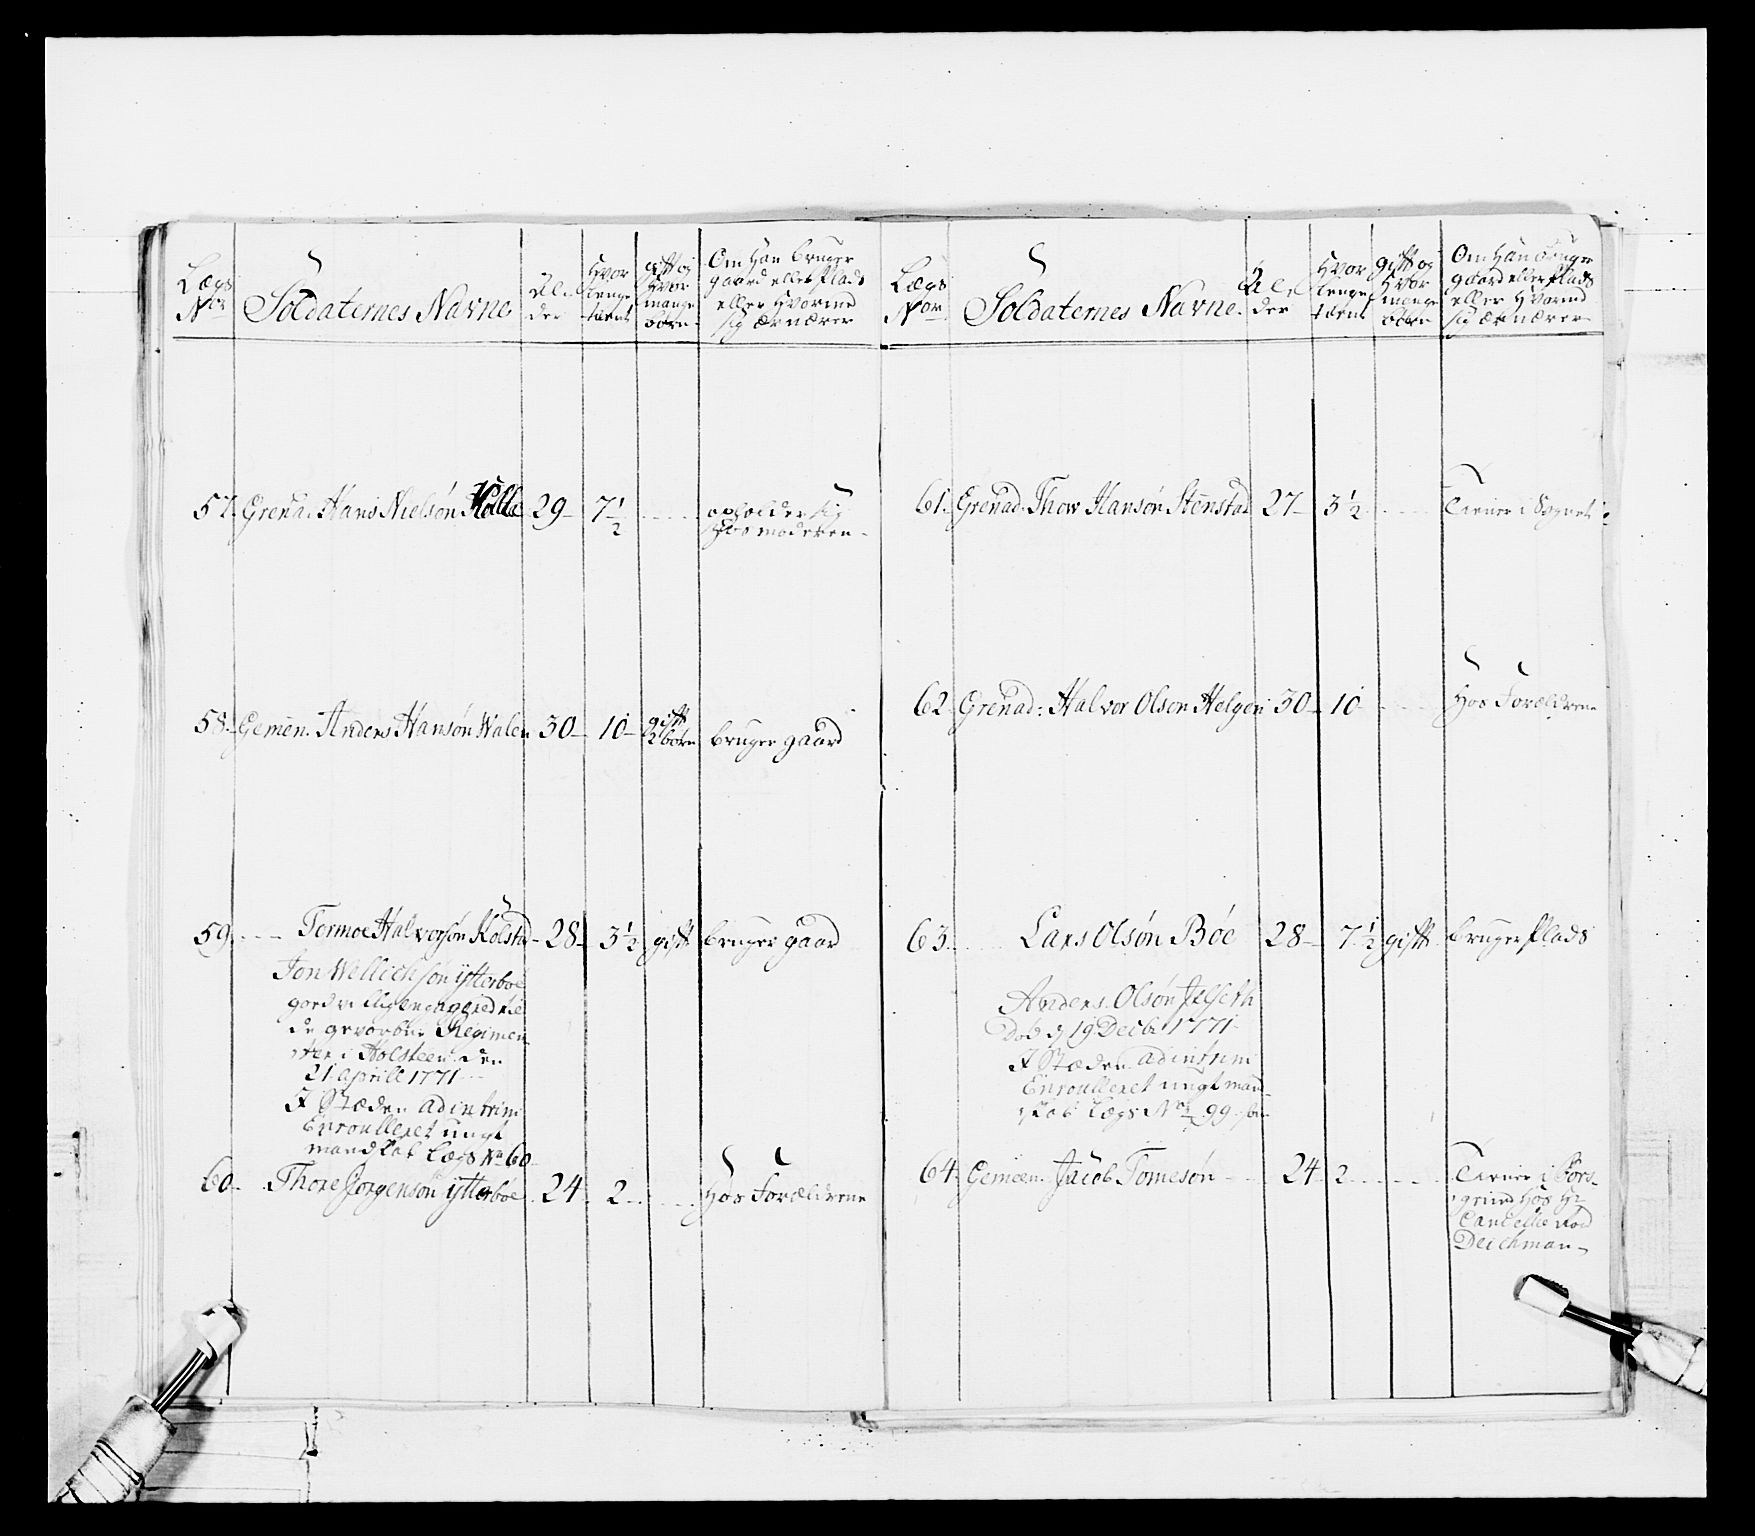 Lægs No
Soldaternes Navne
Al-
der
Hvor
lenge
tient
gift og
Hvor
mange
børn
Om Han bruger
gaard eller Plads
eller Hvormed
sig ærnærer
57. Grena. Hans Nielsøn Kolle 29- 7 1/2 opholder sig
hos moderen-
58. Gemen. Anders Hansøn Walen 30- 10- gift
2 børn bruger gaard
59. Tormoe Halvorsøn Kolstad 28- 3 1/2 gift bruger gaard
Jon Wellichsøn ytterboe
de gevorbne Regimen
ter i Holsteen den
21 aprill 1771
I Stæden ad intrim
Enroulleret ungt
mandskab Lægs No 60
60- Thore Jørgensøn ytterboe 24- 2- Hos Forældrene
Lægs
No
Soldaternes Navne.
Al
der
Hvor
lenge
tient
gift og
Hvor
mange
børn
Om Han bruger
gaard eller Plads
eller Hvormed
sig ærnærer
61. Grenad. Thow Hansøn Stenstad 27- 3 1/2 Tiener i
62. Grenad: Halvor Olson Helgen 30- 10 Hos Forældrene
63. Lars Olsøn Bøe 28- 7 1/2 gift bruger Plads
Anders Olsøn Jelseth
Død d 19 Decbr 1771-
I Stæden ad intrim
Enroulleret ungt man-
skab Lægs No 99
64. Gemeen. Jacob Tomesøn 24 2 Tiener i Pors-
grund Hos Hr
Cancellie Raad
Deichman-